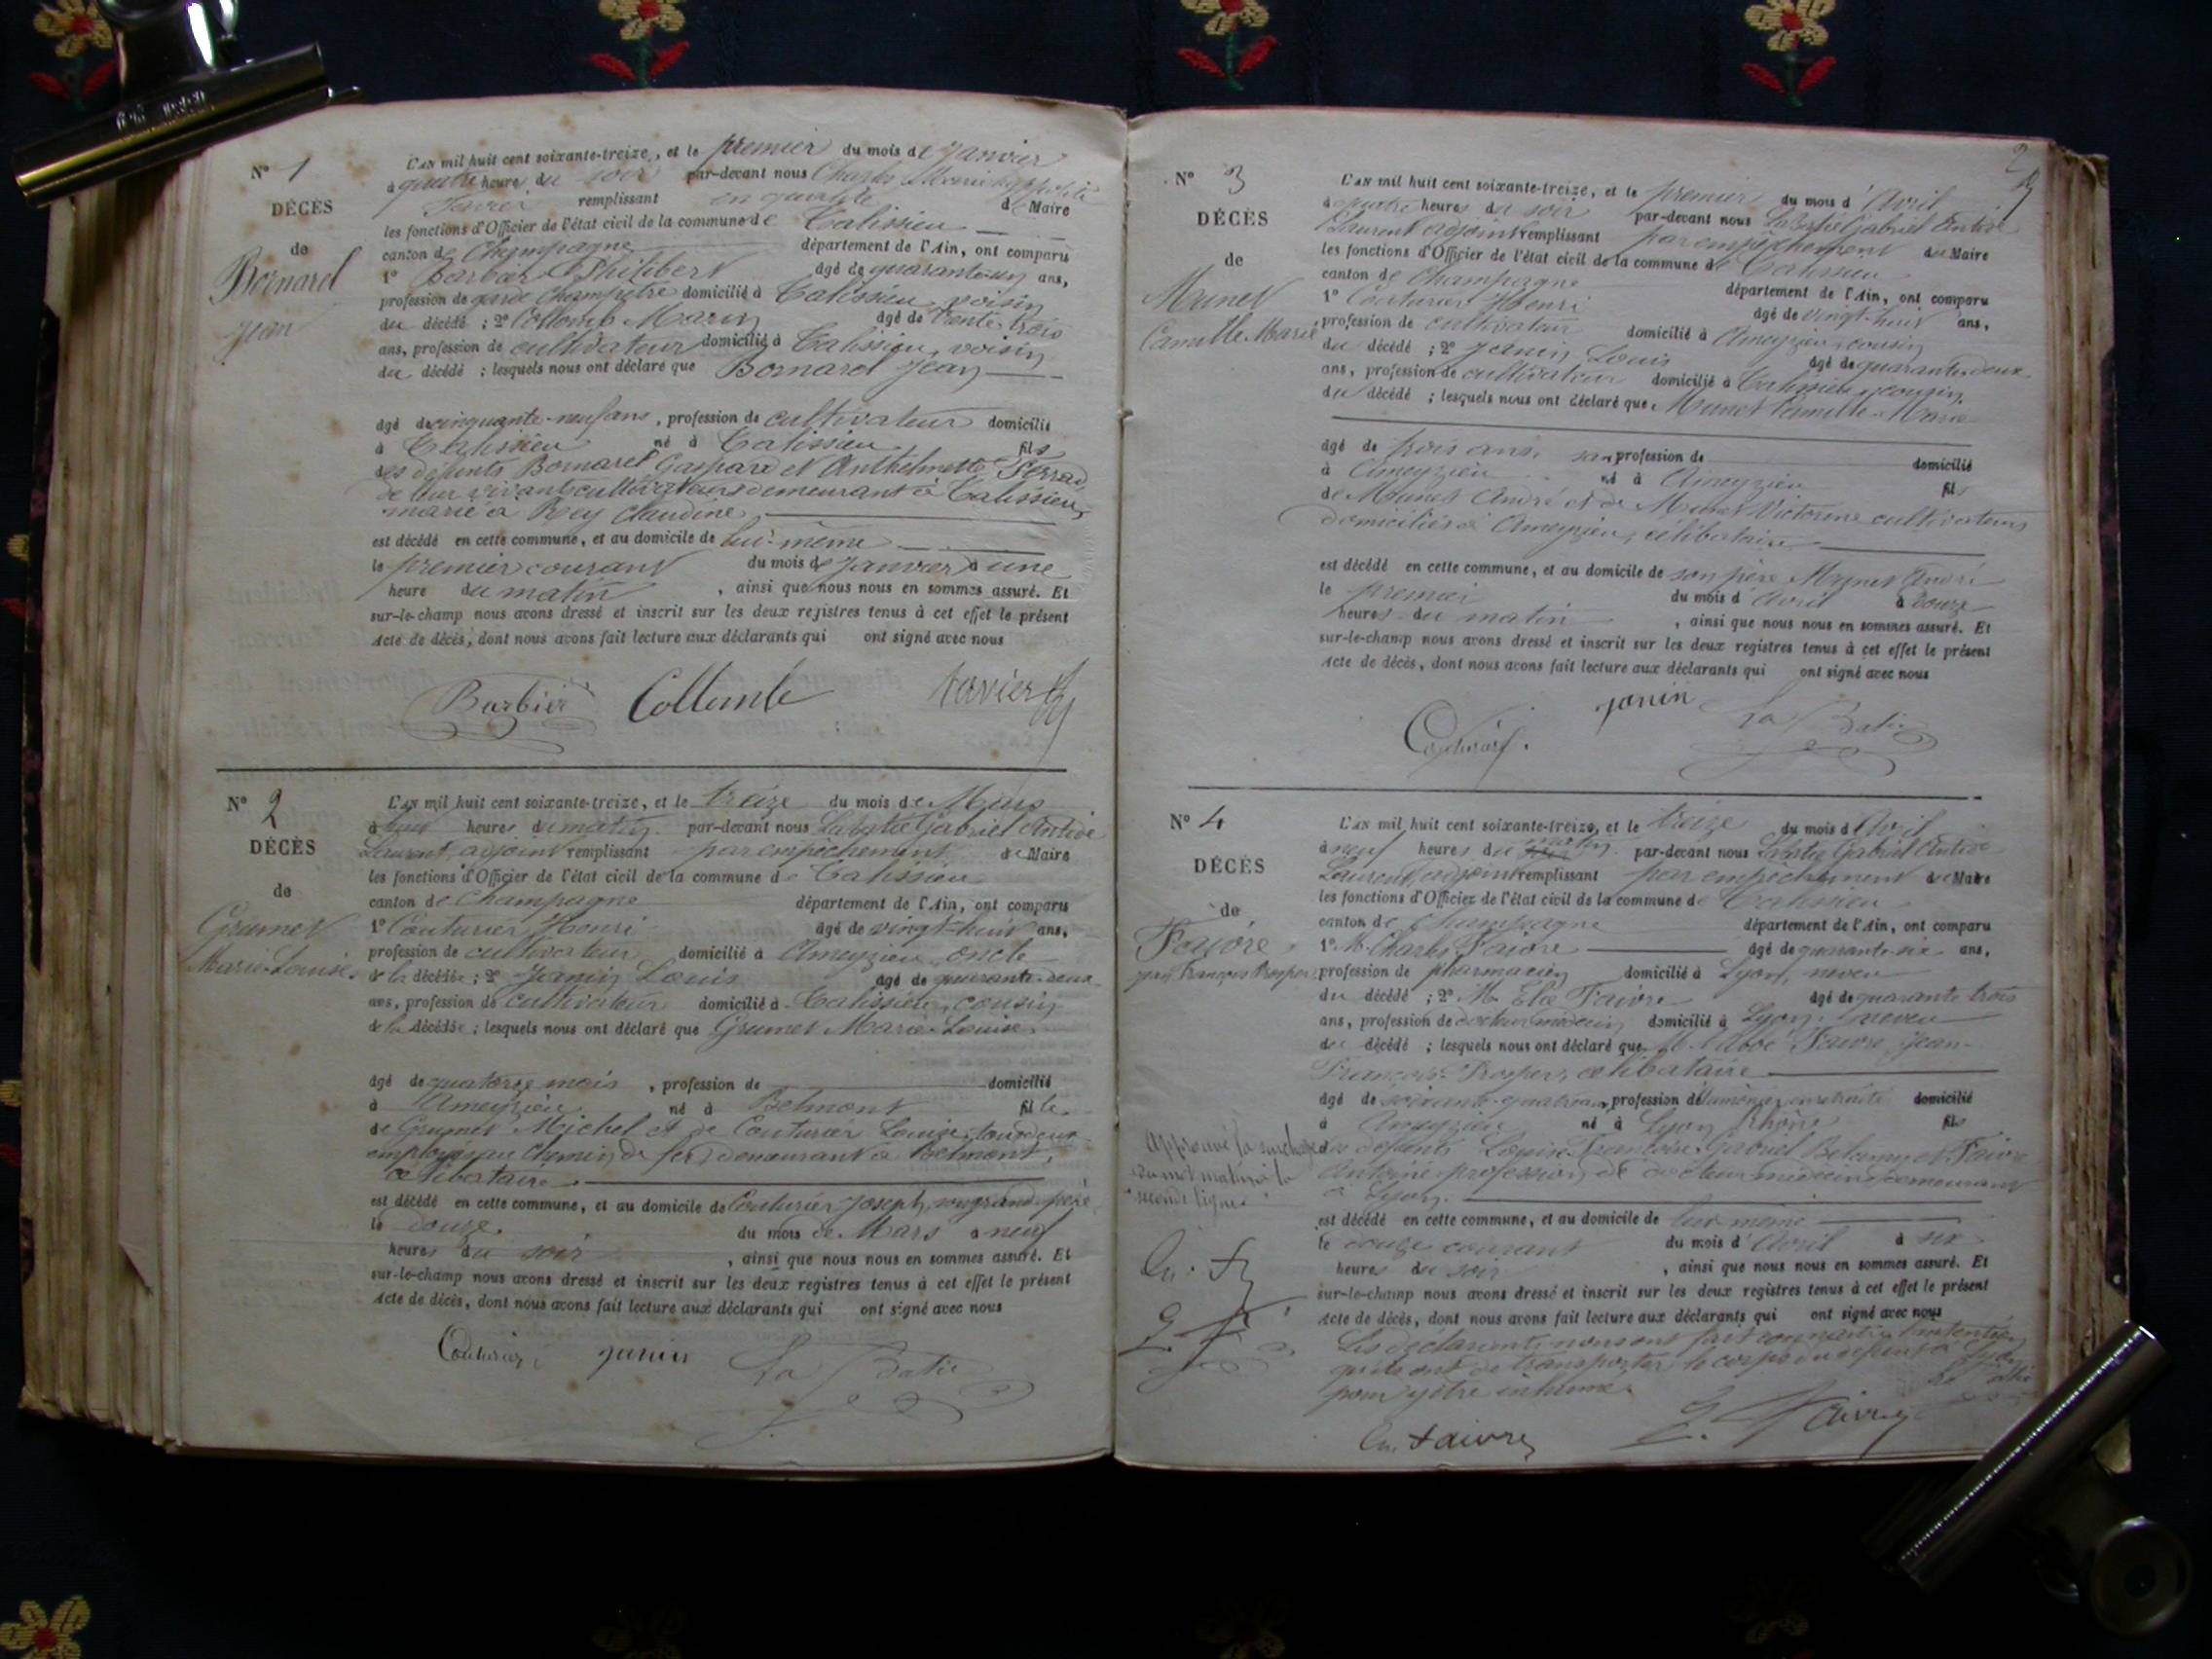 N° 1
DÉCÈS
de
Bornarel
Jean
L'AN mil huit cent soixante-treize, et le premier du mois de Janvier
à quatre heures du soir par-devant nous Charles Marie
remplissant en qualité de Maire
les fonctions d'Officier de l'état civil de la commune de Talissieu
canton de Champagne département de l'Ain, ont comparu
1° Philibert âgé de quarante-un ans,
profession de garde champêtre domicilié à Talissieu voisin
du décédé ; 2° Collomb Marin âgé de trente-trois
ans, profession de cultivateur domicilié à Talissieu, voisin
du décédé ; lesquels nous ont déclaré que Bornarel Jean
âgé de cinquante-neuf ans, profession de cultivateur domicilié
à Talissieu né à Talissieu fils
des défunts Bornarel Gaspard et Anthelmette
de leur vivant cultivateurs demeurant à Talissieu,
marié à Rey Claudine
est décédé en cette commune, et au domicile de lui-même
le premier courant du mois de Janvier à une
heure du matin , ainsi que nous nous en sommes assuré. Et
sur-le-champ nous avons dressé et inscrit sur les deux registres tenus à cet effet le présent
Acte de décès, dont nous avons fait lecture aux déclarants qui ont signé avec nous
Barbier Collomb
N° 2
DÉCÈS
de
Grumet
Marie-Louise.
L'AN mil huit cent soixante-treize, et le treize du mois de Mars
à huit heures du matin par-devant nous Labatie Gabriel Antide
Laurent, adjoint remplissant par empêchement du Maire
les fonctions d'Officier de l'état civil de la commune de Talissieu
canton de Champagne département de l'Ain, ont comparu
1° Couturier Henri âgé de vingt-huit ans,
profession de cultivateur domicilié à Ameyzieu oncle
de la décédée ; 2° Janin Louis âgé de quarante-deux
ans, profession de cultivateur domicilié à Talissieu, cousin
de la décédée ; lesquels nous ont déclaré que Grumet Marie-Louise
âgé de quatorze mois , profession de domicilié
à Ameyzieu né à Belmont fille
de Grumet Michel et de Couturier Louise, tous deux
employés au Chemin de fer, demeurant à Belmont,
célibataire
est décédé en cette commune, et au domicile de Couturier Joseph, son grand-père
le douze du mois de Mars à neuf
heures du soir , ainsi que nous nous en sommes assuré. Et
sur-le-champ nous avons dressé et inscrit sur les deux registres tenus à cet effet le présent
Acte de décès, dont nous avons fait lecture aux déclarants qui ont signé avec nous
Couturier janin La Batie
N° 3
DÉCÈS
de
Munet
Camille Marie
L'AN mil huit cent soixante-treize, et le premier du mois d'Avril
à quatre heures du soir par-devant nous Labatie Gabriel Antide
Laurent adjoint remplissant par empêchement du Maire
les fonctions d'Officier de l'état civil de la commune de Talissieu
canton de Champagne département de l'Ain, ont comparu
1° Couturier Henri âgé de vingt-huit ans,
profession de cultivateur domicilié à Ameyzieu, cousin
du décédé ; 2° Janin Louis âgé de quarante-deux
ans, profession de cultivateur domicilié à Talissieu, cousin
du décédé ; lesquels nous ont déclaré que Munet Camille-Marie
âgé de trois ans sans profession de domicilié
à Ameyzieu né à Ameyzieu fils
de Munet André et de Munet Victorine cultivateurs
domiciliés à Ameyzieu, célibataire
est décédé en cette commune, et au domicile de son père Munet André
le premier du mois d'Avril à douze
heures du matin , ainsi que nous nous en sommes assuré. Et
sur-le-champ nous avons dressé et inscrit sur les deux registres tenus à cet effet le présent
Acte de décès, dont nous avons fait lecture aux déclarants qui ont signé avec nous
janin
La Batie
N° 4
DÉCÈS
de
Faivre
Jean François Prosper
L'AN mil huit cent soixante-treize, et le treize du mois d'Avril
à neuf heures du matin par-devant nous Labatie Gabriel Antide
Laurent, adjoint remplissant par empêchement du Maire
les fonctions d'Officier de l'état civil de la commune de Talissieu
canton de Champagne département de l'Ain, ont comparu
1° M. Charles Faivre âgé de quarante-six ans,
profession de pharmacien domicilié à Lyon, neveu
du décédé ; 2° M. Elie Faivre âgé de quarante-trois
ans, profession de docteur médecin domicilié à Lyon, neveu
du décédé ; lesquels nous ont déclaré que M. l'Abbé Faivre Jean-
François-Prosper, célibataire
âgé de soixante-quatre ans, profession d'aumônier en retraite domicilié
à Ameyzieu né à Lyon Rhône fils
des défunts Louise Françoise Gabriel et Faivre
Antoine profession de docteur médecin demeurant
à Lyon.
est décédé en cette commune, et au domicile de lui-même
le douze courant du mois d'Avril à six
heures du soir , ainsi que nous nous en sommes assuré. Et
sur-le-champ nous avons dressé et inscrit sur les deux registres tenus à cet effet le présent
Acte de décès, dont nous avons fait lecture aux déclarants qui ont signé avec nous
Les déclarants nous ont fait connaître l'intention
qu'ils ont de transporter le corps du défunt à Lyon
pour y être inhumé.
Approuvé la surcharge
du mot matin à la
seconde ligne
Ch. F
E. F
Ch. Faivre
E. Faivre